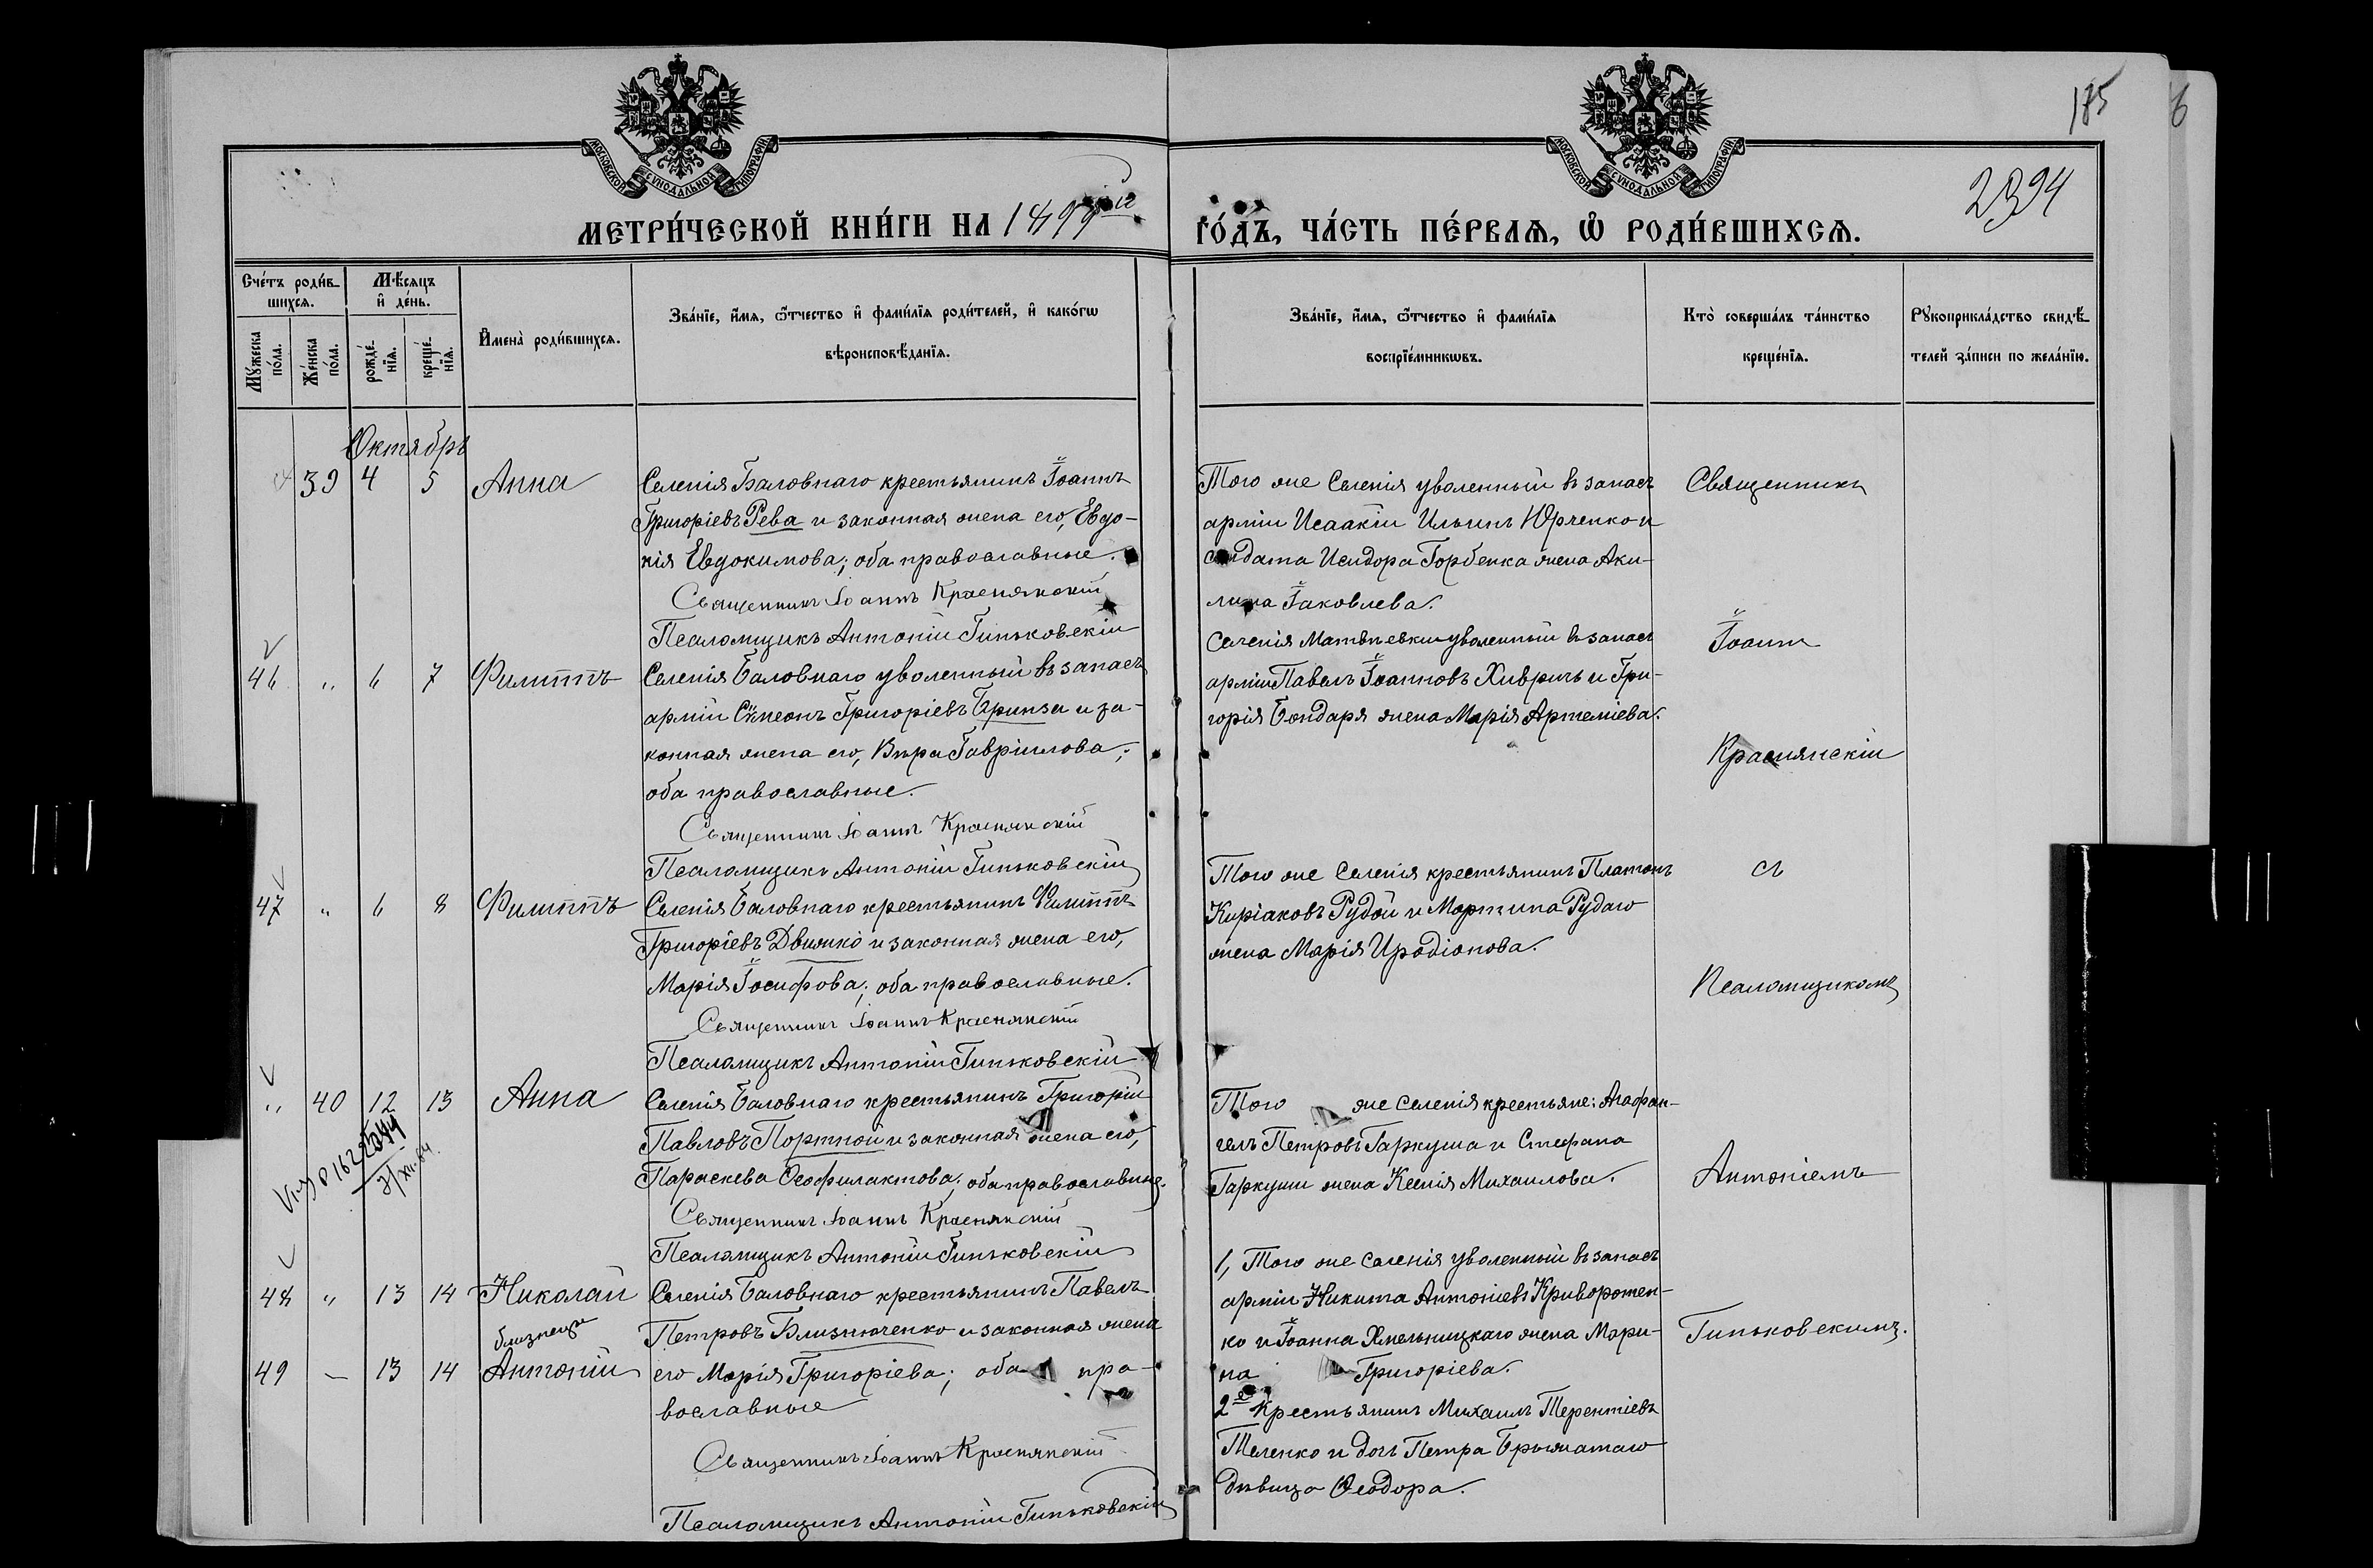 175
6
2394
МОСКОВСКОЙ СѴНОДАЛЬНОЙ ТИПОГРАФІИ
МОСКОВСКОЙ СѴНОДАЛЬНОЙ ТИПОГРАФІИ
МЕТРИ́ЧЕСКОЙ КНИ́ГИ НА 1899ый
ГО́ДЪ, ЧА́СТЬ ПЕ́РВАѦ, Ѽ РОДИ́ВШИХСѦ.
Сче́тъ роди́в-
шихсѧ.
Мѣ́сѧцъ
и҆ де́нь.
Мꙋ́жеска
по́ла.
Же́нска
по́ла.
рожде́-
нїѧ.
креще́-
нїѧ.
И҆мена̀ роди́вшихсѧ.
Зва́нїе, и҆́мѧ, ѻ҆́тчество и҆ фами́лїѧ роди́телей, и҆ како́гѡ
вѣроисповѣ́данїѧ.
Зва́нїе, и҆́мѧ, ѻ҆́тчество и҆ фами́лїѧ
воспрїе́мникѡвъ.
Кто̀ соверша́лъ та́инство
креще́нїѧ.
Рꙋкоприкла́дство свидѣ́-
телей за́писи по жела́нїю.
Октябрь
39 4 5 Анна
Селенія Баловнаго крестьянинъ Іоаннъ
Григоріевъ Рева и законная жена его, Евдо-
кія Евдокимова; оба православные.
Священникъ Іоаннъ Краснянскій
Псаломщикъ Антоній Гиньковскій
Того же селенія уволенный въ запасъ
арміи Исаакій Ильинъ Юрченко и
солдата Исидора Горбенка жена Аки-
лина Іаковлева.
Священникъ
46 " 6 7 Филиппъ
Селенія Баловнаго уволенный въ запасъ
арміи Сѵмеонъ Григоріевъ Бринза и за-
конная жена его, Вѣра Гавріилова;
оба православные.
Священникъ Іоаннъ Краснянскій
Псаломщикъ Антоній Гиньковскій
Селенія Матвѣевки уволенный въ запасъ
арміи Павелъ Іоанновъ Хивричъ и Гри-
горія Бондаря жена Марія Артеміева.
Іоаннъ
Краснянскій
47 " 6 8 Филиппъ
Селенія Баловнаго крестьянинъ Филиппъ
Григоріевъ Движко и законная жена его,
Марія Іосифова; оба православные.
Священникъ Іоаннъ Краснянскій
Псаломщикъ Антоній Гиньковскій
Того же селенія крестьянинъ Платонъ
Киріаковъ Рудой и Мартина Рудаго
жена Марія Иродіонова.
съ
Псаломщикомъ
" 40 12 13 Анна
Селенія Баловнаго крестьянинъ Григорій
Павловъ Портной и законная жена его,
Параскева Ѳеофилактова; оба православные.
Священникъ Іоаннъ Краснянскій
Псаломщикъ Антоній Гиньковскій
Того же селенія крестьяне: Агафан-
гелъ Петровъ Гаркуша и Стефана
Гаркуши жена Ксенія Михаилова.
Антоніемъ
48 " 13 14 Николай
близнецы
49 — 13 14 Антоній
Селенія Баловнаго крестьянинъ Павелъ
Петровъ Близнюченко и законная жена
его Марія Григоріева; оба пра-
вославные
Священникъ Іоаннъ Краснянскій
Псаломщикъ Антоній Гиньковскій
1, Того же селенія уволенный въ запасъ
арміи Никита Антоніевъ Криворотен-
ко и Іоанна Хмельницкаго жена Мари-
на Григоріева.
2е Крестьянинъ Михаилъ Терентіевъ
Теленко и дочь Петра
дѣвица Ѳеодора.
Гиньковскимъ.